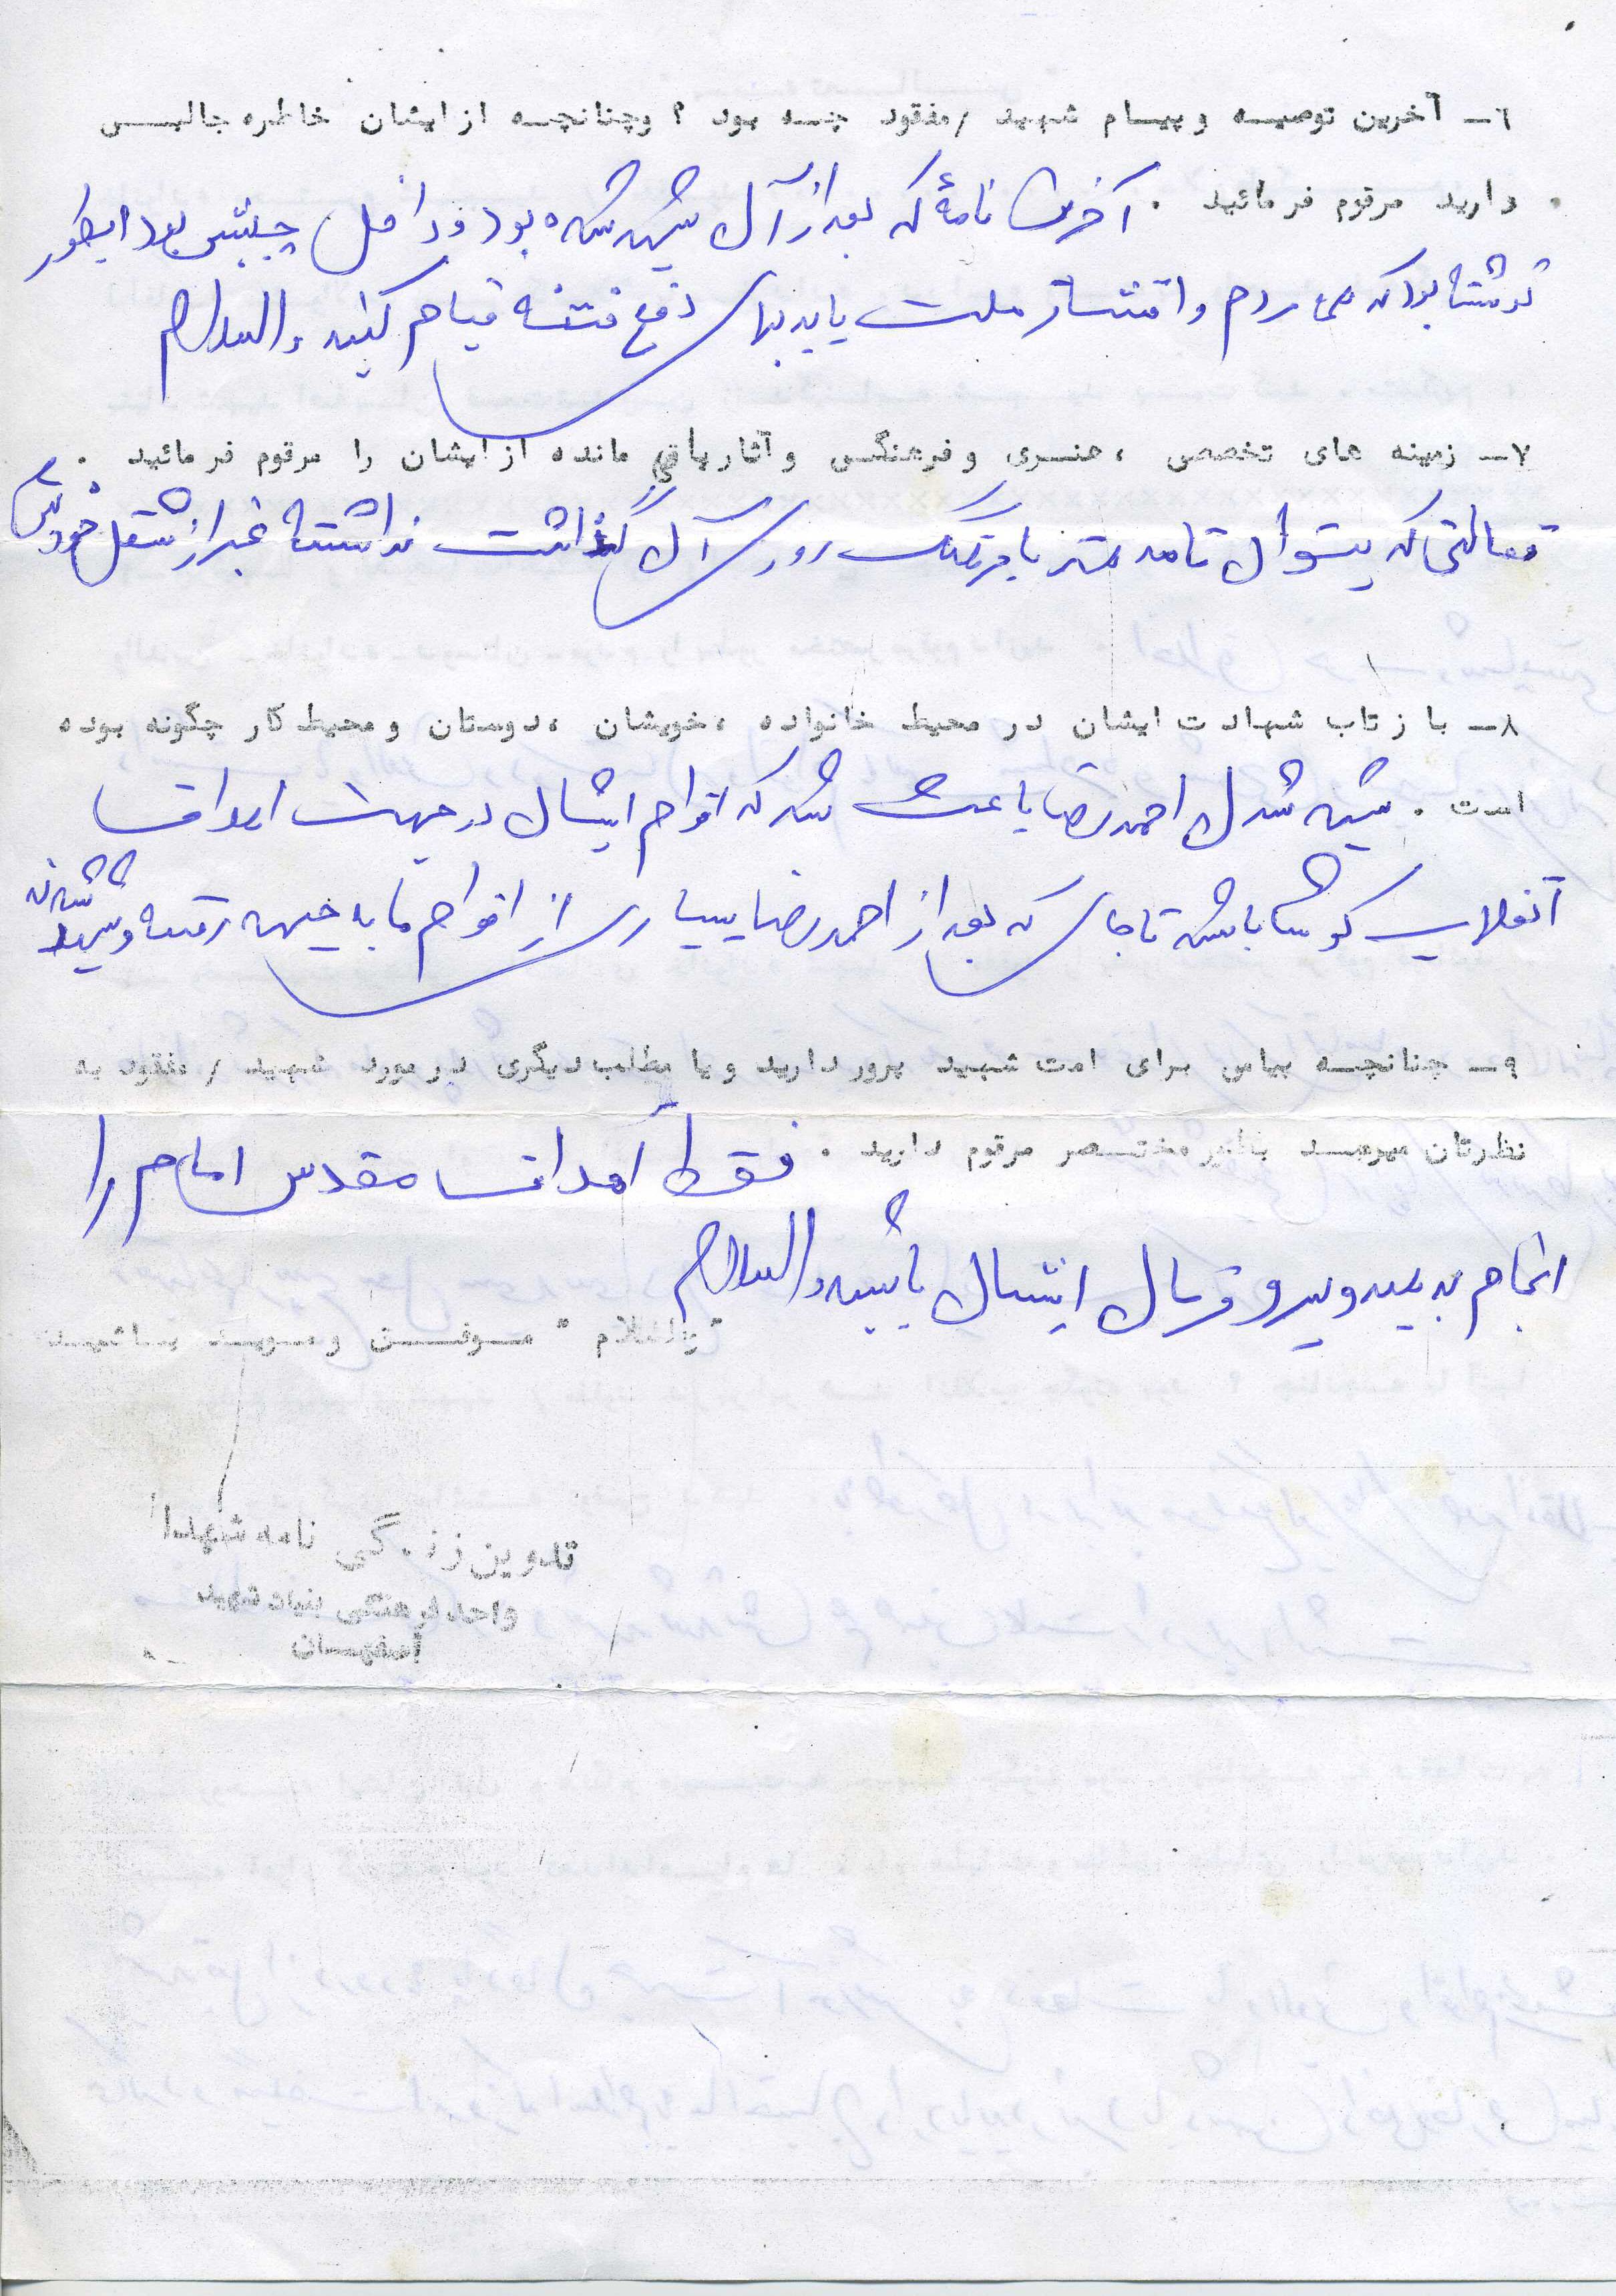 ۶ــ آخرین توصیـه و پیـام شهید /مفقود چـه بود ؟ وچنانچـه از ایشان خاطره جالبـی
دارید مرقوم فرمائید . آخرین نامهٔ که بعد از آن شهید شده بود و داخل جیبش بود اینطور
نوشته بود که ای مردم و اقشار ملت باید برای دفع فتنه قیام کنید والسلام
۷ــ زمینه های تخصصی ، هنـری و فرهنگـی و آثار باقی مانده از ایشان را مرقوم فرمائید .
فعالتی که بتوان نامه هنر یا فرهنگ روی آن گذاشت نداشته غیر از شغل خودش
۸ــ با ز تاب شهادت ایشان در محیط خانواده ، خویشان ، دوستان و محیط کار چگونه بوده
است . شهید شدن احمدرضا باعث شد که اقوام ایشان در جهت اهداف
انقلاب کوشا باشند تا جای که بعد از احمدرضا بسیاری از اقوام ما به جبهه رفته و شهید شدند
۹ــ چنانچـه پیامی برای امت شهید پرور دارید و یا مطلب دیگری در مورد شهید / مفقود به
نظرتان میرسـد بطور مختـصر مرقوم دارید . فقط اهداف مقدس امام را
انجام بدهید و پیرو فرمان ایشان باشید والسلام
" والسلام " مـوفـق و مـویـد بـاشیـد
تدوین زندگی نامه شهدا
واحد فرهنگی بنیاد شهید
اصفهـان